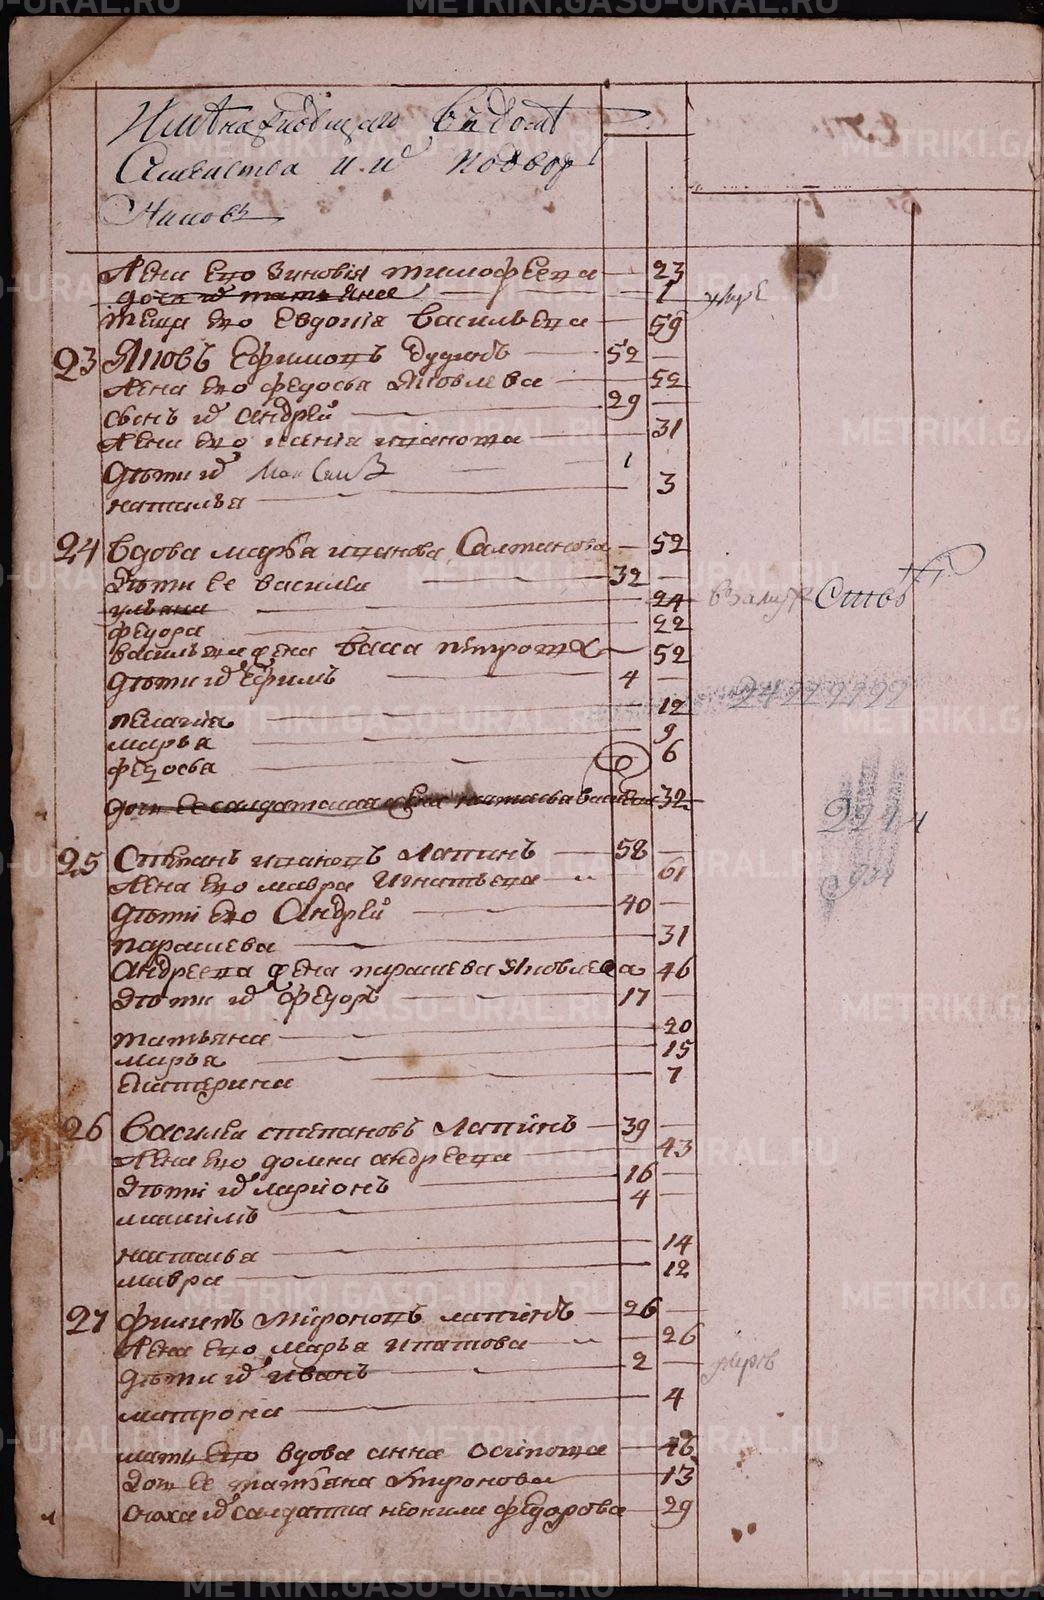 Семейства и их подвор
Жена его Зиновія Тимофеева 23
дочь их Татьяна 1 умре
теща его Евдокія Васильева 59
23 Яковъ Ефимовъ 52
Жена его Федосья Яковлева 52
сынъ их Андрей 29
Жена его Ксенія Иванова 31
дѣти их Максимъ 1
Наталья 3
24 Вдова Марья Иванова Салтанова 52
Дѣти ее Василей 32
Ульяна 24 взамуж
Федора 22
Васильева жена Васса Петрова 52
дѣти их Ефимъ 4
Пелагія 12
Марья 9
Федосья 6
дочь ее салдатская жена Настасья 32
25 Степанъ Ивановъ Лапинъ 58
Жена его Мавра Игнатьева 61
Дѣти его Андрей 40
Парасковья 31
Андреева жена Парасковья Яковлева 46
Дѣти их Федоръ 17
Татьяна 20
Марья 15
Екатерина 7
26 Василей Степановъ Лапинъ 39
Жена его Домна Андреева 43
Дѣти их Ларионъ 16
Максимъ 4
Наталья 14
Мавра 12
27 Филипъ Мироновъ Лапинъ 26
Жена его Марья Ипатова 26
Дѣти их Иванъ 2 умръ
Матрона 4
мать его вдова Анна Осипова 46
Дочь ее Татьяна Миронова 13
сноха их салдатка Неонила Федорова 29